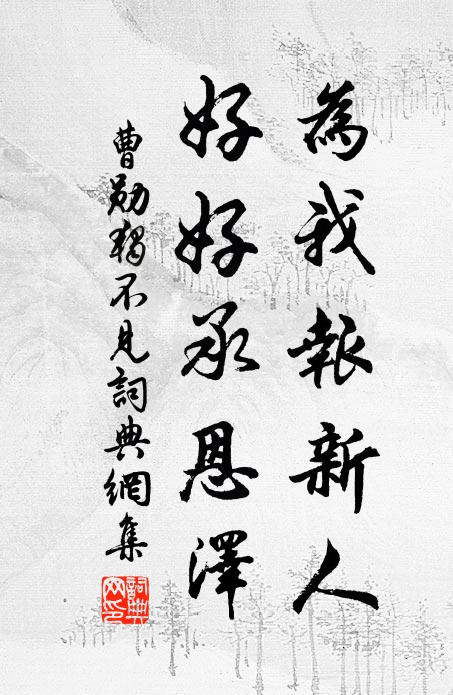 為我報新人
好好承恩澤
曹勛獨不見詞典網集
詞典網印